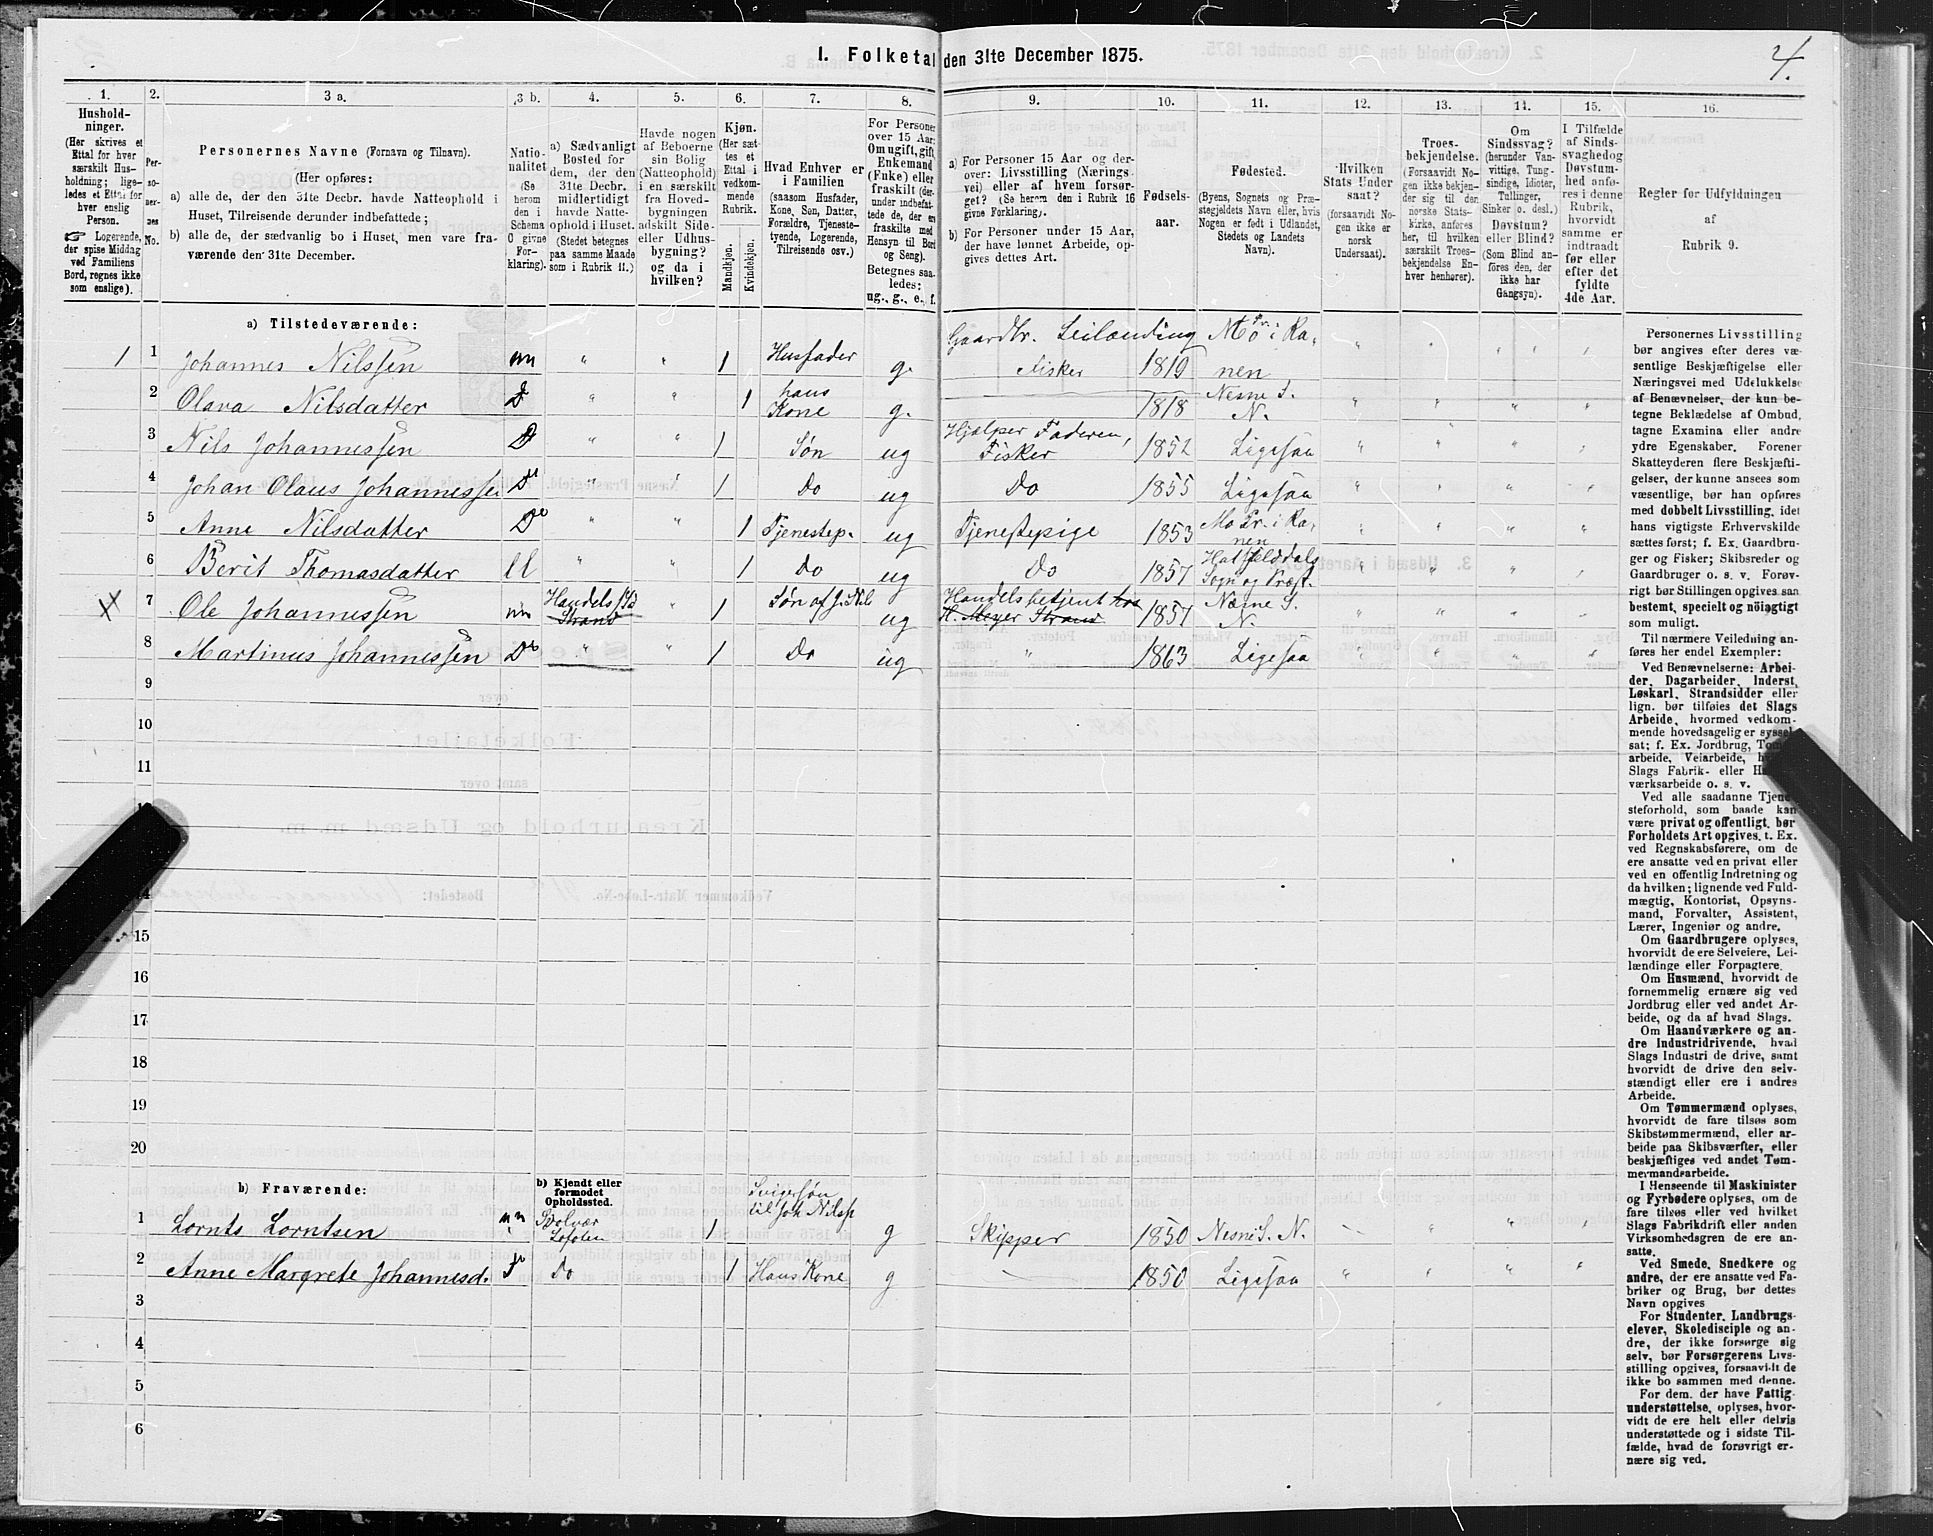 I. Folketal den 31te December 1875.
4.
1.
Hushold-
ninger.
(Her skrives et
Ettal for hver
særskilt Hus-
holdning; lige-
ledes et Ettal for
hver enslig
Person.
☞ Logerende,
der spise Middag
ved Familiens
Bord, regnes ikke
som enslige).
2.
Per-
so-
ner-
nes
No.
3 a.
Personernes Navne (Fornavn og Tilnavn).
(Her opføres:
a) alle de, der den 31te Decbr. havde Natteophold i
Huset, Tilreisende derunder indbefattede;
b) alle de, der sædvanlig bo i Huset, men vare fra-
værende den 31te December.
3 b.
Natio-
nalitet
(Se
herom
den i
Schema
O givne
For-
klaring).
4.
a) Sædvanligt
Bosted for
dem, der den
31te Decbr.
midlertidigt
havde Natte-
ophold i Huset.
(Stedet betegnes
paa samme Maade
som i Rubrik 11.)
5.
Havde nogen
af Beboerne
sin Bolig
(Natteophold)
i en særskilt
fra Hoved-
bygningen
adskilt Side-
eller Udhus-
bygning?
og da i
hvilken?
6.
Kjøn.
(Her sæt-
tes et
Ettal i
vedkom-
mende
Rubrik.
Mandkjøn.
Kvindekjøn.
7.
Hvad Enhver er
i Familien
(saasom Husfader,
Kone, Søn, Datter,
Forældre, Tjeneste-
tyende, Logerende,
Tilreisende osv.)
8.
For Personer
over 15 Aar:
Om ugift, gift,
Enkemand
(Enke) eller
fraskilt (der-
under indbefat-
tede de, der ere
fraskilte med
Hensyn til Bord
og Seng).
Betegnes saa-
ledes:
ug., g., e., f.
9.
a) For Personer 15 Aar og der-
over: Livsstilling (Nærings-
vei) eller af hvem forsør-
get? (Se herom den i Rubrik 16
givne Forklaring).
b) For Personer under 15 Aar,
der have lønnet Arbeide, op-
gives dettes Art.
10.
Fødsels-
aar.
11.
Fødested.
(Byens, Sognets og Præ-
stegjeldets Navn eller, hvis
Nogen er født i Udlandet,
Stedets og Landets
Navn).
12.
Hvilken
Stats Under
saat?
(forsaavidt No-
gen ikke er
norsk
Undersaat).
13.
Troes-
bekjendelse.
(Forsaavidt No-
gen ikke bekjen-
der sig til den
norske Stats-
kirke, anføres
her, til hvilken
særskilt Troes-
bekjendelse En-
hver henhører).
14.
Om
Sindssvag?
(herunder Van-
vittige, Tung-
sindige, Idioter,
Tullinger,
Sinker o. desl.)
Døvstum?
eller Blind?
(Som Blind an-
føres den, der
ikke har
Gangsyn).
15.
I Tilfælde
af Sinds-
svaghedog
Døvstum-
hed anfø-
res i denne
Rubrik,
hvorvidt
samme er
indtraadt
før eller
efter det
fyldte
4de Aar.
16.
Regler for Udfyldningen
af
Rubrik 9.
a) Tilstedeværende:
1 1 Johannes Nilssen nn " " 1 Husfader g. Gaardbr. Leilænding Fisker 1819 Mo Pr. i Ranen
2 Olava Nilsdatter D " " 1 hans Kone g. 1818 Nesne S. N.
3 Nils Johannessen D " " 1 Søn ug Hjælper Faderen, Fisker 1852 Ligesaa
4 Johan Olaus Johannessen Do " " 1 Do ug Do 1855 Ligesaa
5 Anne Nilsdatter Do " " 1 Tjenestep. ug Tjenestepige 1853 Mo Pr. i Ranen
6 Berit Thomasdatter " " 1 Do ug Do 1857 Hatfjelddals Sogn og Præst.
7 Ole Johannessen nn Handels Strand " 1 Søn af J. Nils ug Handelsbetjent hos H. Meyer Strand 1857 Næsne S. N.
8 Martinus Johannessen Do " " 1 Do ug " 1863 Ligesaa
9
10
11
15
16
17
18
19
20
b) Fraværende:
b) Kjendt eller
formodet
Opholdssted.
1 Lornts Lorntsen nn Svolvær Lofoten 1 Svigersøn til Joh Nilss g Skipper 1850 Nesne S. N.
2 Anne Margrete Johannesd. Do Do 1 Hans Kone g 1850 Ligesaa
3
4
5
6
Personernes Livsstilling
bør angives efter deres væ-
sentlige Beskjæftigelse eller
Næringsvei med Udelukkelse
af Benævnelser, der kun be-
tegne Beklædelse af Ombud,
tagne Examina eller andre
ydre Egenskaber. Forener
Skatteyderen flere Beskjæfti-
gelser, der kunne ansees som
væsentlige, bør han opføres
med dobbelt Livsstilling, idet
hans vigtigste Erhvervskilde
sættes først; f. Ex. Gaardbru-
ger og Fisker; Skibsreder og
Gaardbruger o. s. v. Forøv-
rigt bør Stillingen opgives saa
bestemt, specielt og nøiagtigt
som muligt.
Til nærmere Veiledning an-
føres her endel Exempler:
Ved Benævnelserne: Arbei-
der, Dagarbeider, Inderst,
Løskarl, Strandsidder eller
lign. bør tilføies det Slags
Arbeide, hvormed vedkom-
mende hovedsagelig er syssel-
sat; f. Ex. Jordbrug,
arbeide, Veiarbeide,
Slags Fabrik- eller
værksarbeide o. s. v.
Ved alle saadanne Tjene-
steforhold, som baade kan
være privat og offentligt, bør
Forholdets Art opgives, t. Ex.
ved Regnskabsførere, om de
ere ansatte ved en privat eller
ved en offentlig Indretning og
da hvilken; lignende ved Fuld-
mægtig, Kontorist, Opsyns-
mand, Forvalter, Assistent,
Lærer, Ingeniør og andre.
Om Gaardbrugere oplyses,
hvorvidt de ere Selveiere, Lei-
lændinge eller Forpagtere.
Om Husmænd, hvorvidt de
fornemmelig ernære sig ved
Jordbrug eller ved andet Ar-
beide, og da af hvad Slags.
Om Haandværkere og an-
dre Industridrivende, hvad
Slags Industri de drive, samt
hvorvidt de drive den selv-
stændigt eller ere i andres
Arbeide.
Om Tømmermænd oplyses,
hvorvidt de fare tilsøs som
Skibstømmermænd, eller ar-
beide paa Skibsværfter, eller
beskjæftiges ved andet Tøm-
mermandsarbeide.
I Henseende til Maskinister
og Fyrbødere oplyses, om de
fare tilsøs eller ved hvilket
Slags Fabrikdrift eller anden
Virksomhedsgren de ere an-
satte.
Ved Smede, Snedkere og
andre, der ere ansatte ved Fa-
briker og Brug, bør dettes
Navn opgives
For Studenter, Landbrugs-
elever, Skoledisciple og an-
dre, der ikke forsørge sig
selv, bør Forsørgerens Livs-
stilling opgives, forsaavidt de
ikke bo sammen med denne.
For dem, der have Fattig-
understøttelse, oplyses, hvor-
vidt de ere helt eller delvis
understøttede og i sidste Til-
fælde, hvad de forøvrigt er-
nære sig ved.